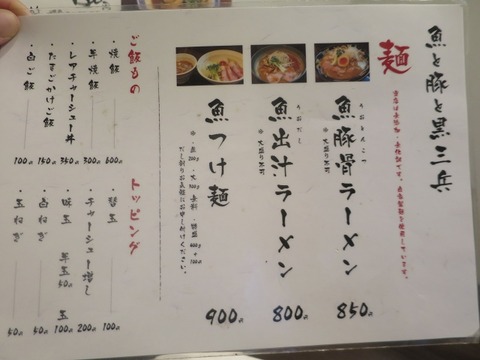 魚と豚と黒三兵
麺
うおとんこつ
魚豚骨ラーメン
※大盛り不可
850円
うおだし
魚出汁ラーメン
※大盛り不可
800円
魚つけ麺
900円
ご飯もの
・焼飯 600円
・半焼飯 300円
・レアチャーシュー丼 350円
・たまごかけご飯 150円
・白ご飯 100円
トッピング
・替玉 100円
・チャーシュー増し 200円
・味玉 100円
半玉 50円
・白ねぎ 50円
・玉ねぎ 50円